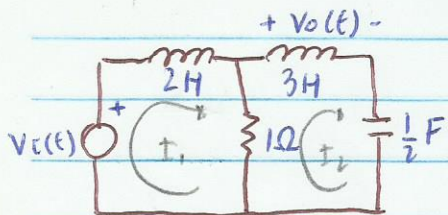 + Vo(t) -
2H
3H
+
Vi(t)
I₁
1Ω
I₂
½ F